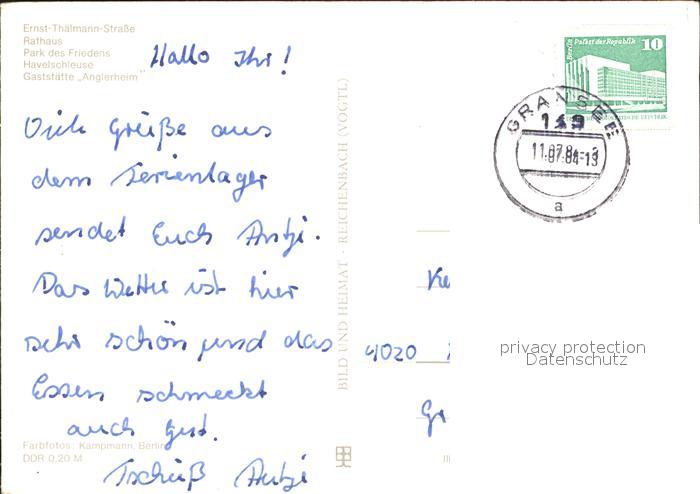 Ernst-Thälmann-Straße
Rathaus
Park des Friedens
Havelschleuse
Gaststätte „Anglerheim"
Hallo Ihr!
Viele Grüße aus
dem Ferienlager
sendet Euch Antje.
Das Wetter ist hier
sehr schön und das
Essen schmeckt
auch gut.
Tschüß Antje
Farbfotos: Kampmann, Berlin
DDR 0,20 M
BILD UND HEIMAT · REICHENBACH (VOGTL)
Berlin Palast der Republik 10
GRANSEE
11.07.84-13
a
4020
privacy protection
Datenschutz